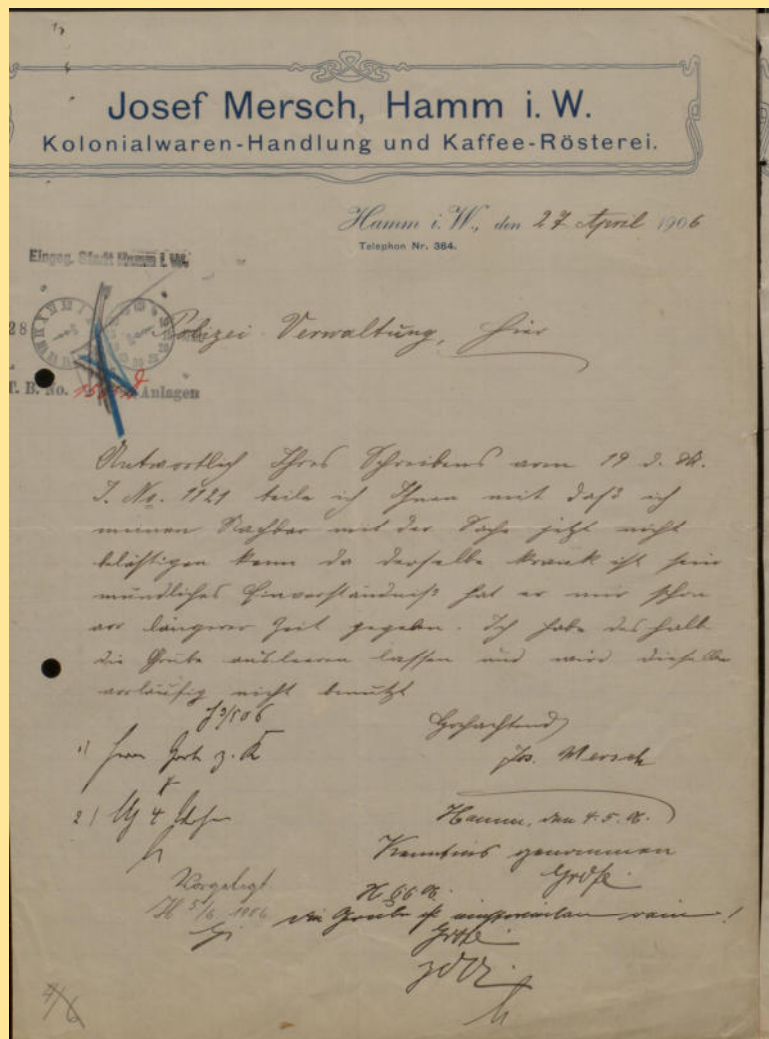 Josef Mersch, Hamm i. W.
Kolonialwaren-Handlung und Kaffee-Rösterei.
Hamm i. W., den 27 April 1906
Telephon Nr. 364.
Eingeg. Stadt Hamm i. W.
Polizei Verwaltung, hier
T. B. No. Anlagen
Antwortlich Ihres Schreibens vom 19 d. M.
I. No. 1121 teile ich Ihnen mit daß ich
meinen Nachbar mit der Sache jetzt nicht
belästigen kann da derselbe krank ist sein
mündliches Einverständniß hat er mir schon
vor längerer Zeit gegeben. Ich habe deshalb
die Grube ausleeren lassen und wird dieselbe
vorläufig nicht benutzt
Hochachtend
Jos. Mersch
1) Herrn z. K
2)
Hamm, den 4.5.06.
Kenntnis genommen
Vorgelegt
H 5/6 1906
H 6 6 06.
die Grube ist einstweilen rein!